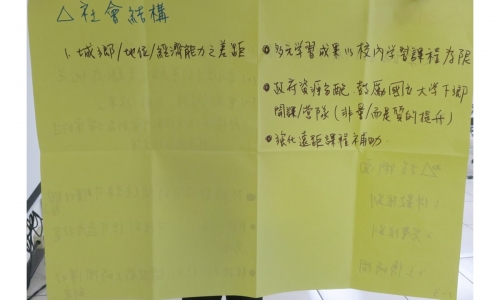 △社會結構
1. 城鄉/地位/經濟能力之差距
●多元學習成果以校內學習課程為限
●政府資源分配,鼓勵國立大學下鄉
開課/營隊(非量/而是質的提升)
●強化遠距課程補助.